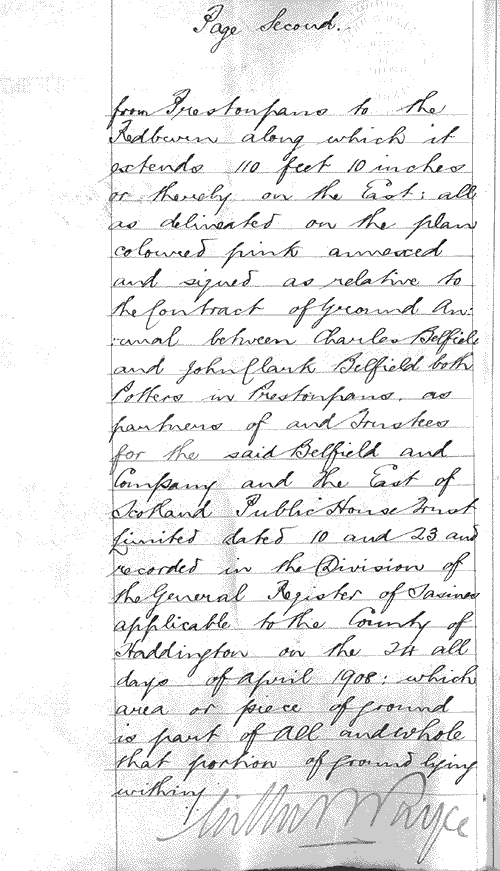 Page Second.
from Prestonpans to the
Redburn along which it
extends 110 feet 10 inches
or thereby on the East; all
as delineated on the plan
coloured pink annexed
and signed as relative to
the Contract of Ground An:
:nual between Charles Belfield
and John Clark Belfield both
Potters in Prestonpans, as
partners of and Trustees
for the said Belfield and
Company and the East of
Scotland Public House Trust
Limited dated 10 and 23 and
recorded in the Division of
the General Register of Sasines
applicable to the County of
Haddington on the 24 all
days of April 1908: which
area or piece of ground
is part of All and whole
that portion of ground lying
within